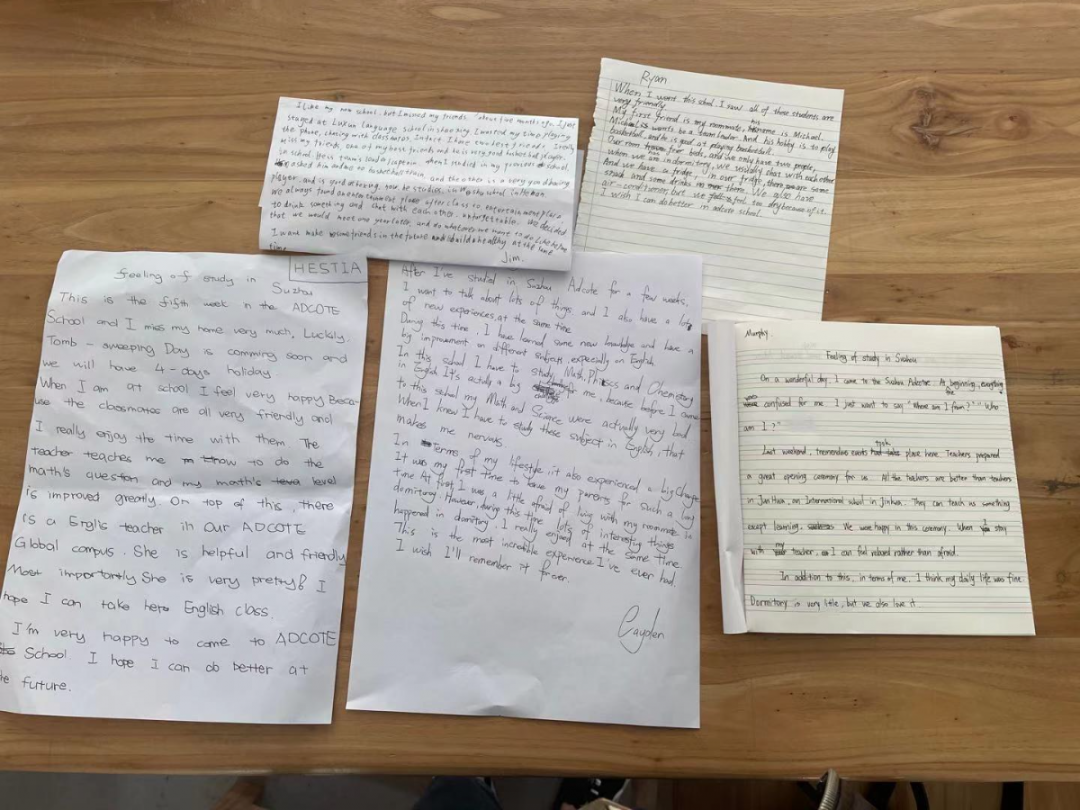 I like my new school, but I missed my friends. About five months ago, I just
stayed at Luxun language school in shaoxing. I wasted my time playing
the phone, chating with classmates. Intact I have two best friends. I really
miss my friends, one of my best friends and he is very good basketball player
in school. He is team's leader/captain. When I studied in my previous school.
asked him and me to basketball train, and the other is a very good
player, and is good at
We always found an entertainment place after class to
to drink something and chat with each other. unforgettable. We decided
that we would meet one year later, and do whatever we want to do like before
I want make friends in the future and build a healthy. at the same
time
Jim.
Ryan
When I went this shool I saw all of these students are
very friendly
My first friend is my roommate, his name is Michael.
Michael is wants to be a team leader. And his hobby is to play
basketball, and he is good at playing basketball.
Our room four beds, and we only have two people,
when we are in dormitory, we ususally chat with each other
And we have a fridge, in over fridge, there are some
snack and some drinks in there. We also have
air-conditioner, but we feel too dry because of it
I wish I can do better in adcote school.
feeling of study in
HESTIA
Suzhou
This is the fifth week in the ADCOTE
School and I miss my home very much, Luckily,
Tomb-sweeping Day is comming soon and
we will have 4-days holiday.
When I am at school I feel very happy Beca-
use the classmates are all very friendly and
I really enjoy the time with them. The
teacher teaches me how to do the
math's question and my math's level
is improved greatly. On top of this, there
is a Englis teacher in Our ADCOTE
Global campus. She is helpful and friendly
Most importantly She is very pretty! I
hope I can take her English class.
I'm very happy to come to ADCOTE
School. I hope I can do better at
the future.
After I've studied in Suzhou Adcote for a few weeks,
I want to talk about lots of things and I also have a lots
of new experiences, at the same time
During this time, I have learned some new knowledge and have a
big improvement on different subjects, especially on English
In this school I have to study Math, Physics and Chemistry
in English. It's actually a big for me, because before I came
to this school my Math and Science were actually very bad
When I knew I have to study these subject in English, that
makes me nervous.
In Terms of my lifestyle, it also experienced a big change
It was my first time to leave my parents for such a long
time. At first I was a little afraid of living with my roommate in
domitory. However, during this time lots of interesting things
happened in domitory. I really enjoyed at the same time
This is the most incredible experience I've ever had.
I wish I'll remember it forever.
Cayden
Murphy
Feeling of study in Suzhou
On a wonderful day, I came to the Suzhou Adcote. At the beginning, everything
was confused for me. I just want to say "Where am I from?" "Who
am I?"
Last weekend, tremendous events took place here. Teachers prepared
a great opening ceremony for us. All the teachers are better than teachers
in JunHua, an International school in Jinhua. They can teach us something
except learning. We were happy in this ceremony. When I stay
with my teacher, I can feel relaxed rather than afraid.
In addition to this, in terms of me, I think my daily life was fine.
Dormitory is very little, but we also love it